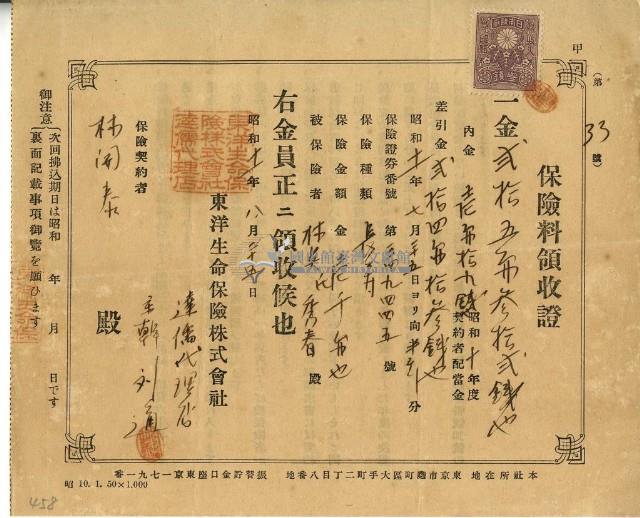 甲
(第 33 號)
保險料領收證
一金貳拾五円參拾貳錢也
內金 壱円拾九錢 昭和十年度契約者配當金
差引金貳拾四円拾參錢也
昭和十一年七月 五日ヨリ向 分
保險證券番號 第 四九四四五號
保險種類
保險金額 金壱千円也
被保險者 林 氏秀春 殿
右金員正ニ領收候也
昭和十一年八月 日
東洋生命保險株式會社
達倫代理店
主幹 刘通
保險契約者
林開泰
殿
御注意
次回拂込期日は昭和 年 月 日です
裏面記載事項御覽を願ひます
本社所在地 東京市麴町區大手町二丁目八番地 振替貯金口座東京一七九一番
昭 10. 1. 50×1.000
458
國立臺灣文學館